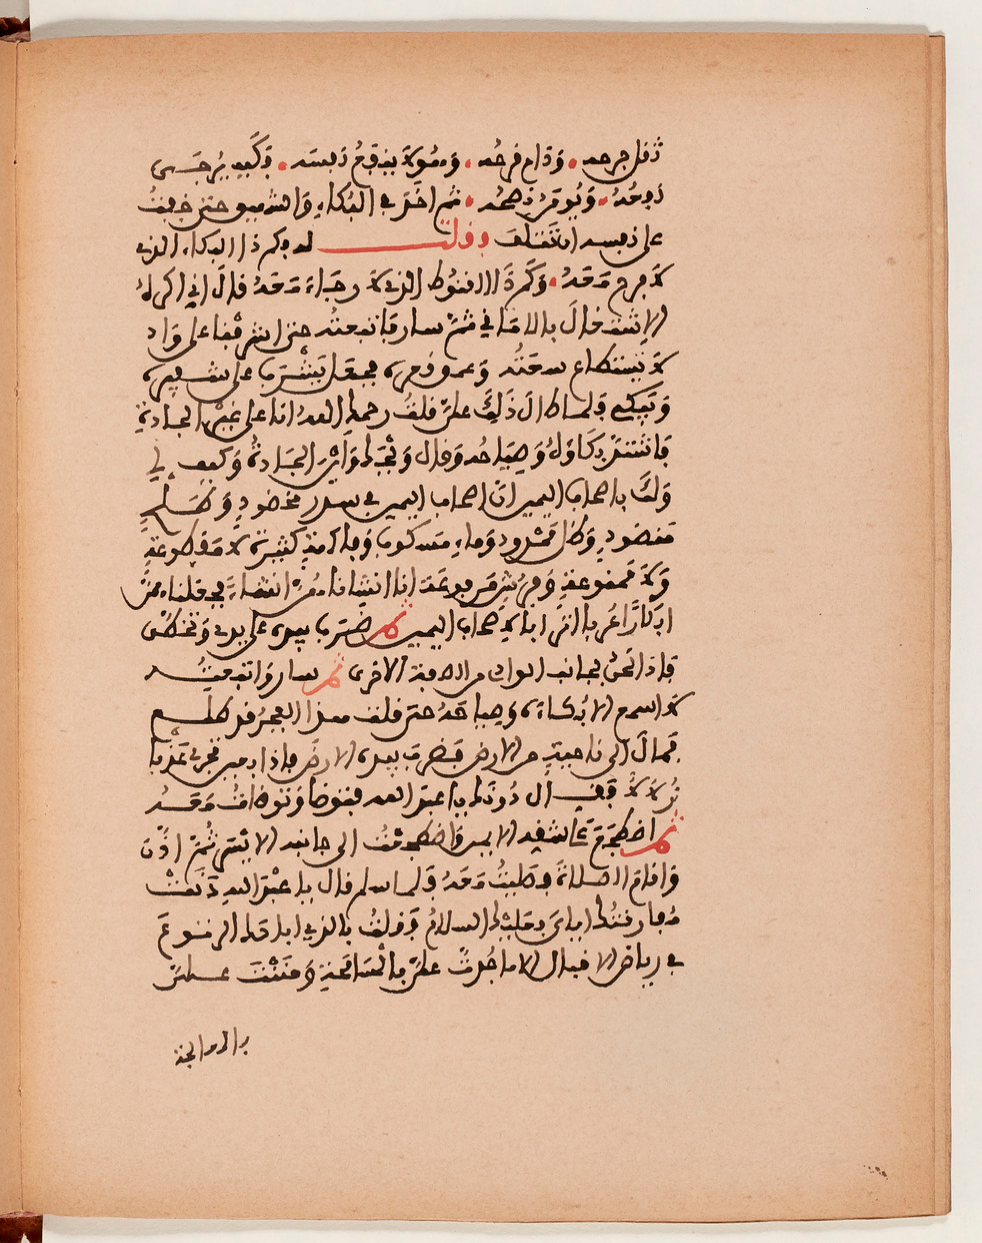 ثقل جرحه ودام قرحه وهو لا ينفع نفسه فكيف يرجى
نفعه ويومن ثم اخذ في البكاء والشهيق حتى خفت
على نفسه ان تتلف وقلت له بكم ذا البكاء الذي
لا فرح معه وكم ذا القنوط الذي لا رجاء معه قال اني اكره
الاشتغال بالاماني ثم سار فاتبعته حتى اشرفنا على واد
لا تستطاع سعته وعمق قعره فجعل يتشرف على شفيره
ويبكي فلما طال ذلك علي قلت رحمك الله انا على غير الجادة
فاشتد بكاؤه وصياحه وقال ويحك واين الجادة وكيف لي
ولك باصحاب اليمين ان اصحاب اليمين في سدر مخضود وطلح
منضود وظل ممدود وماء مسكوب وفاكهة كثيرة لا مقطوعة
ولا ممنوعة وفرش مرفوعة انا انشاناهن انشاء فجعلناهن
ابكارا عربا اترابا لاصحاب اليمين ثم ضرب بيده على يدي وتخطى
فاذا نحن بجانب الوادي من الضفة الاخرى ثم سار واتبعته
لا اسمع الا بكاءه وصياحه حتى قلت هذا الفجر قد طلع
فمال الى ناحية من الارض فضرب بيده الارض فاذا بعين تجري عذبا
زلالا فقال دونك يا عبد الله فتوضا وتوضات معه
ثم اضطجع على شقه الايمن واضطجعت الى جانبه الايسر ثم اذن
واقام الصلاة فصليت معه فلما سلم قال يا عبد الله دنت
مفارقتك اياي فعليك السلام فقلت بالذي اباحك الرتوع
في رياض الاقبال الا ما جدت علي بالمسامحة ومننت علي